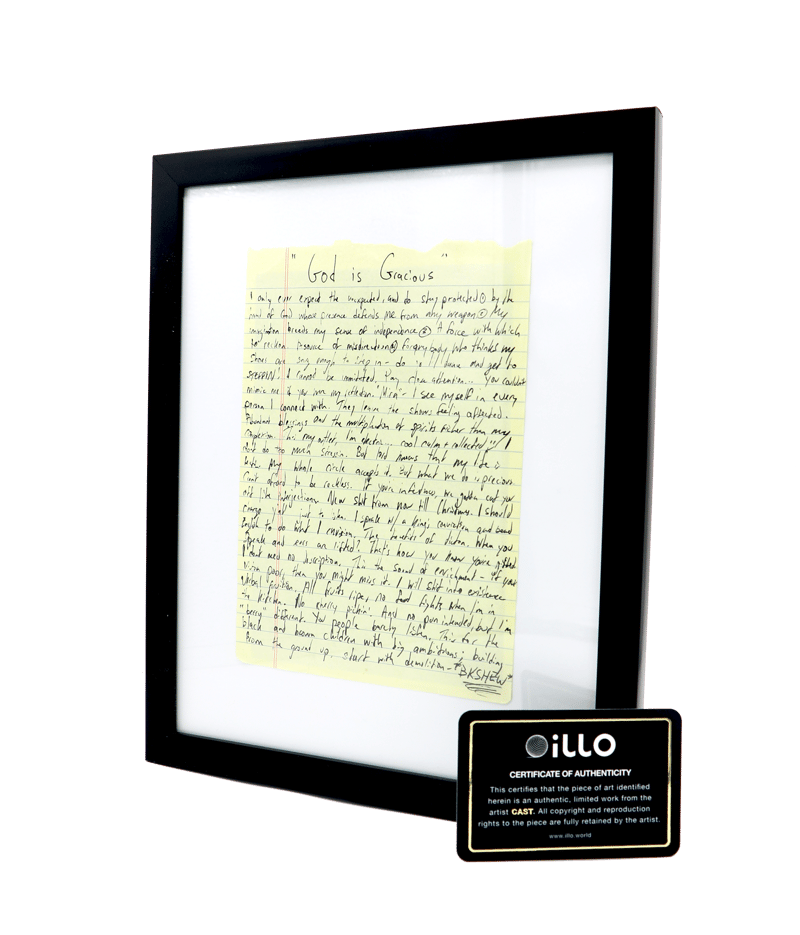 "God is Gracious"
I only ever expect the unexpected, and do stay protected by the
hand of God whose presence defends me from any weapon My
imagination breeds my sense of independence A force with which
to reckon source of misdirection For anybody who thinks my
shoes are easy enough to step in - do 'n 11 dance and get to
steppin! I cannot be imitated, Pay close attention... You couldn't
mimic me if you were my reflection. Mirror - I see myself in every
person I connect with. They leave the shows feeling affected.
Abundant blessings and the multiplication of spirits rather than my
competition. This my outlet, I'm electric. cool calm + collected I
don't do too much stressin. But that means that my life is
better. My whole circle accepts it. But what we do is precious
Can't afford to be reckless. If you're infectious, we gotta cut you
out like interjections. New shit from now till Christmas. I should
charge you just to listen. I speak w/ a kings conviction and been
to do what I envision. The benefits of diction. When you
speak and ears are lifted? That's how you know you're gifted
I don't need no description. This the sound of enrichment - if your
vision poor, then you might miss it. I will shit into existence
Verbal fruition. All fruits ripe, no food fights when I'm in
the kitchen. No cherry pickin'. And no pun intended, but I'm
"berry" different. You people barely listen. This for the
black and brown children with big ambitions; building
from the ground up, start with demolition - "BKSHEW"
iLLO
CERTIFICATE OF AUTHENTICITY
This certifies that the piece of art identified
herein is an authentic, limited work from the
artist CAST. All copyright and reproduction
rights to the piece are fully retained by the artist.
www.illo.world